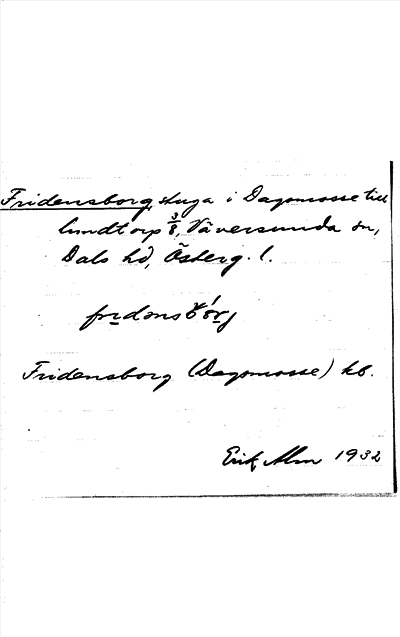 Fridensborg, stuga i Dagsmosse till
lundtorp 3/8, Väversunda sn,
Dals hd, Österg. l.
Fridensborg (Dagsmosse) kb.
Erik Alm 1932